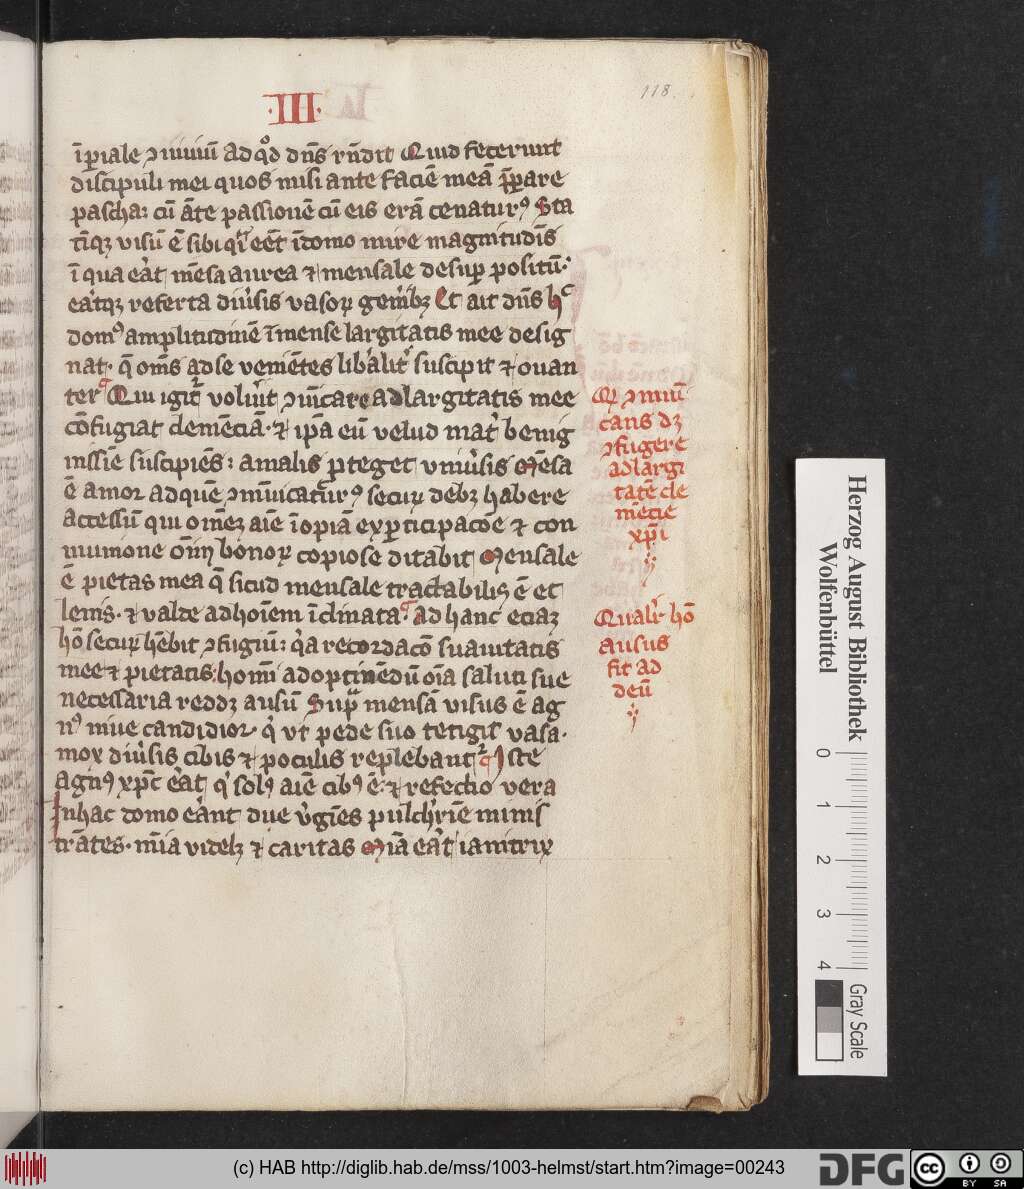 ·III·
118.
īperiale ↄuiuiū ad qd' dn̄s rn̄dit Quid fecerunt
discipuli mei quos misi ante faciē meā p̄pare
pascha: cū āte passionē cū eis erā cenaturꝰ Sta
tīqꝫ visū ē sibi qd' eēt ī domo mire magnitudīs
ī qua eāt mēsa aurea ⁊ mensale desup positū·
eātqꝫ referta diūsis vasoꝝ genībꝫ Et ait dn̄s hᶜ
domꝰ amplitudinē īmense largitatis mee desig
nat· q̄ om̄s ad se veniētes libālit' suscipit ⁊ ouan
ter Qui igit' volūit ↄuīcare ad largitatis mee
cōfugiat clemēciā· ⁊ ip̄a eū velud mat' benig
nissīe suscipiēs: a malis ꝓteget vniūsis Mēsa
ē amor ad quē ↄmūicaturꝰ secuꝝ debꝫ habere
accessū qui omēꝫ aīe īopiā ex ꝑticipacōe ⁊ con
munione om̄iū bonoꝝ copiose ditabit Mensale
ē pietas mea q̄ sicud mensale tractabilis ē et
lenis· ⁊ valde ad hoīem īclinata· ad hanc eciaꝫ
hō secuꝝ hēbit ↄfugiū: q̇a recordacō suauitatis
mee ⁊ pietatis homī ad optinēdū oīa saluti sue
necessaria reddꝫ ausū Sup̄ mensā visus ē ag
nꝰ niue candidior q̇ vt pede suo tetigit vasa·
mox diūsis cibis ⁊ poculis replebant' Iste
agnꝰ xp̄c eāt q̇ solꝰ aīe cibꝰ ē· ⁊ refectio vera
In hac domo eānt due v̇gīes pulchrīe minis
trātes· mīa videlꝫ ⁊ caritas Mīa eāt ianitrix
Qd' ↄmūi
cans dꝫ
ↄfugere
ad largi
tatē cle
mēcie
xp̄i
Qualit' hō
ausus
sit ad
deū
Herzog August Bibliothek
Wolfenbüttel
0 1 2 3 4
Gray Scale
(c) HAB http://diglib.hab.de/mss/1003-helmst/start.htm?image=00243
DFG
cc
BY SA